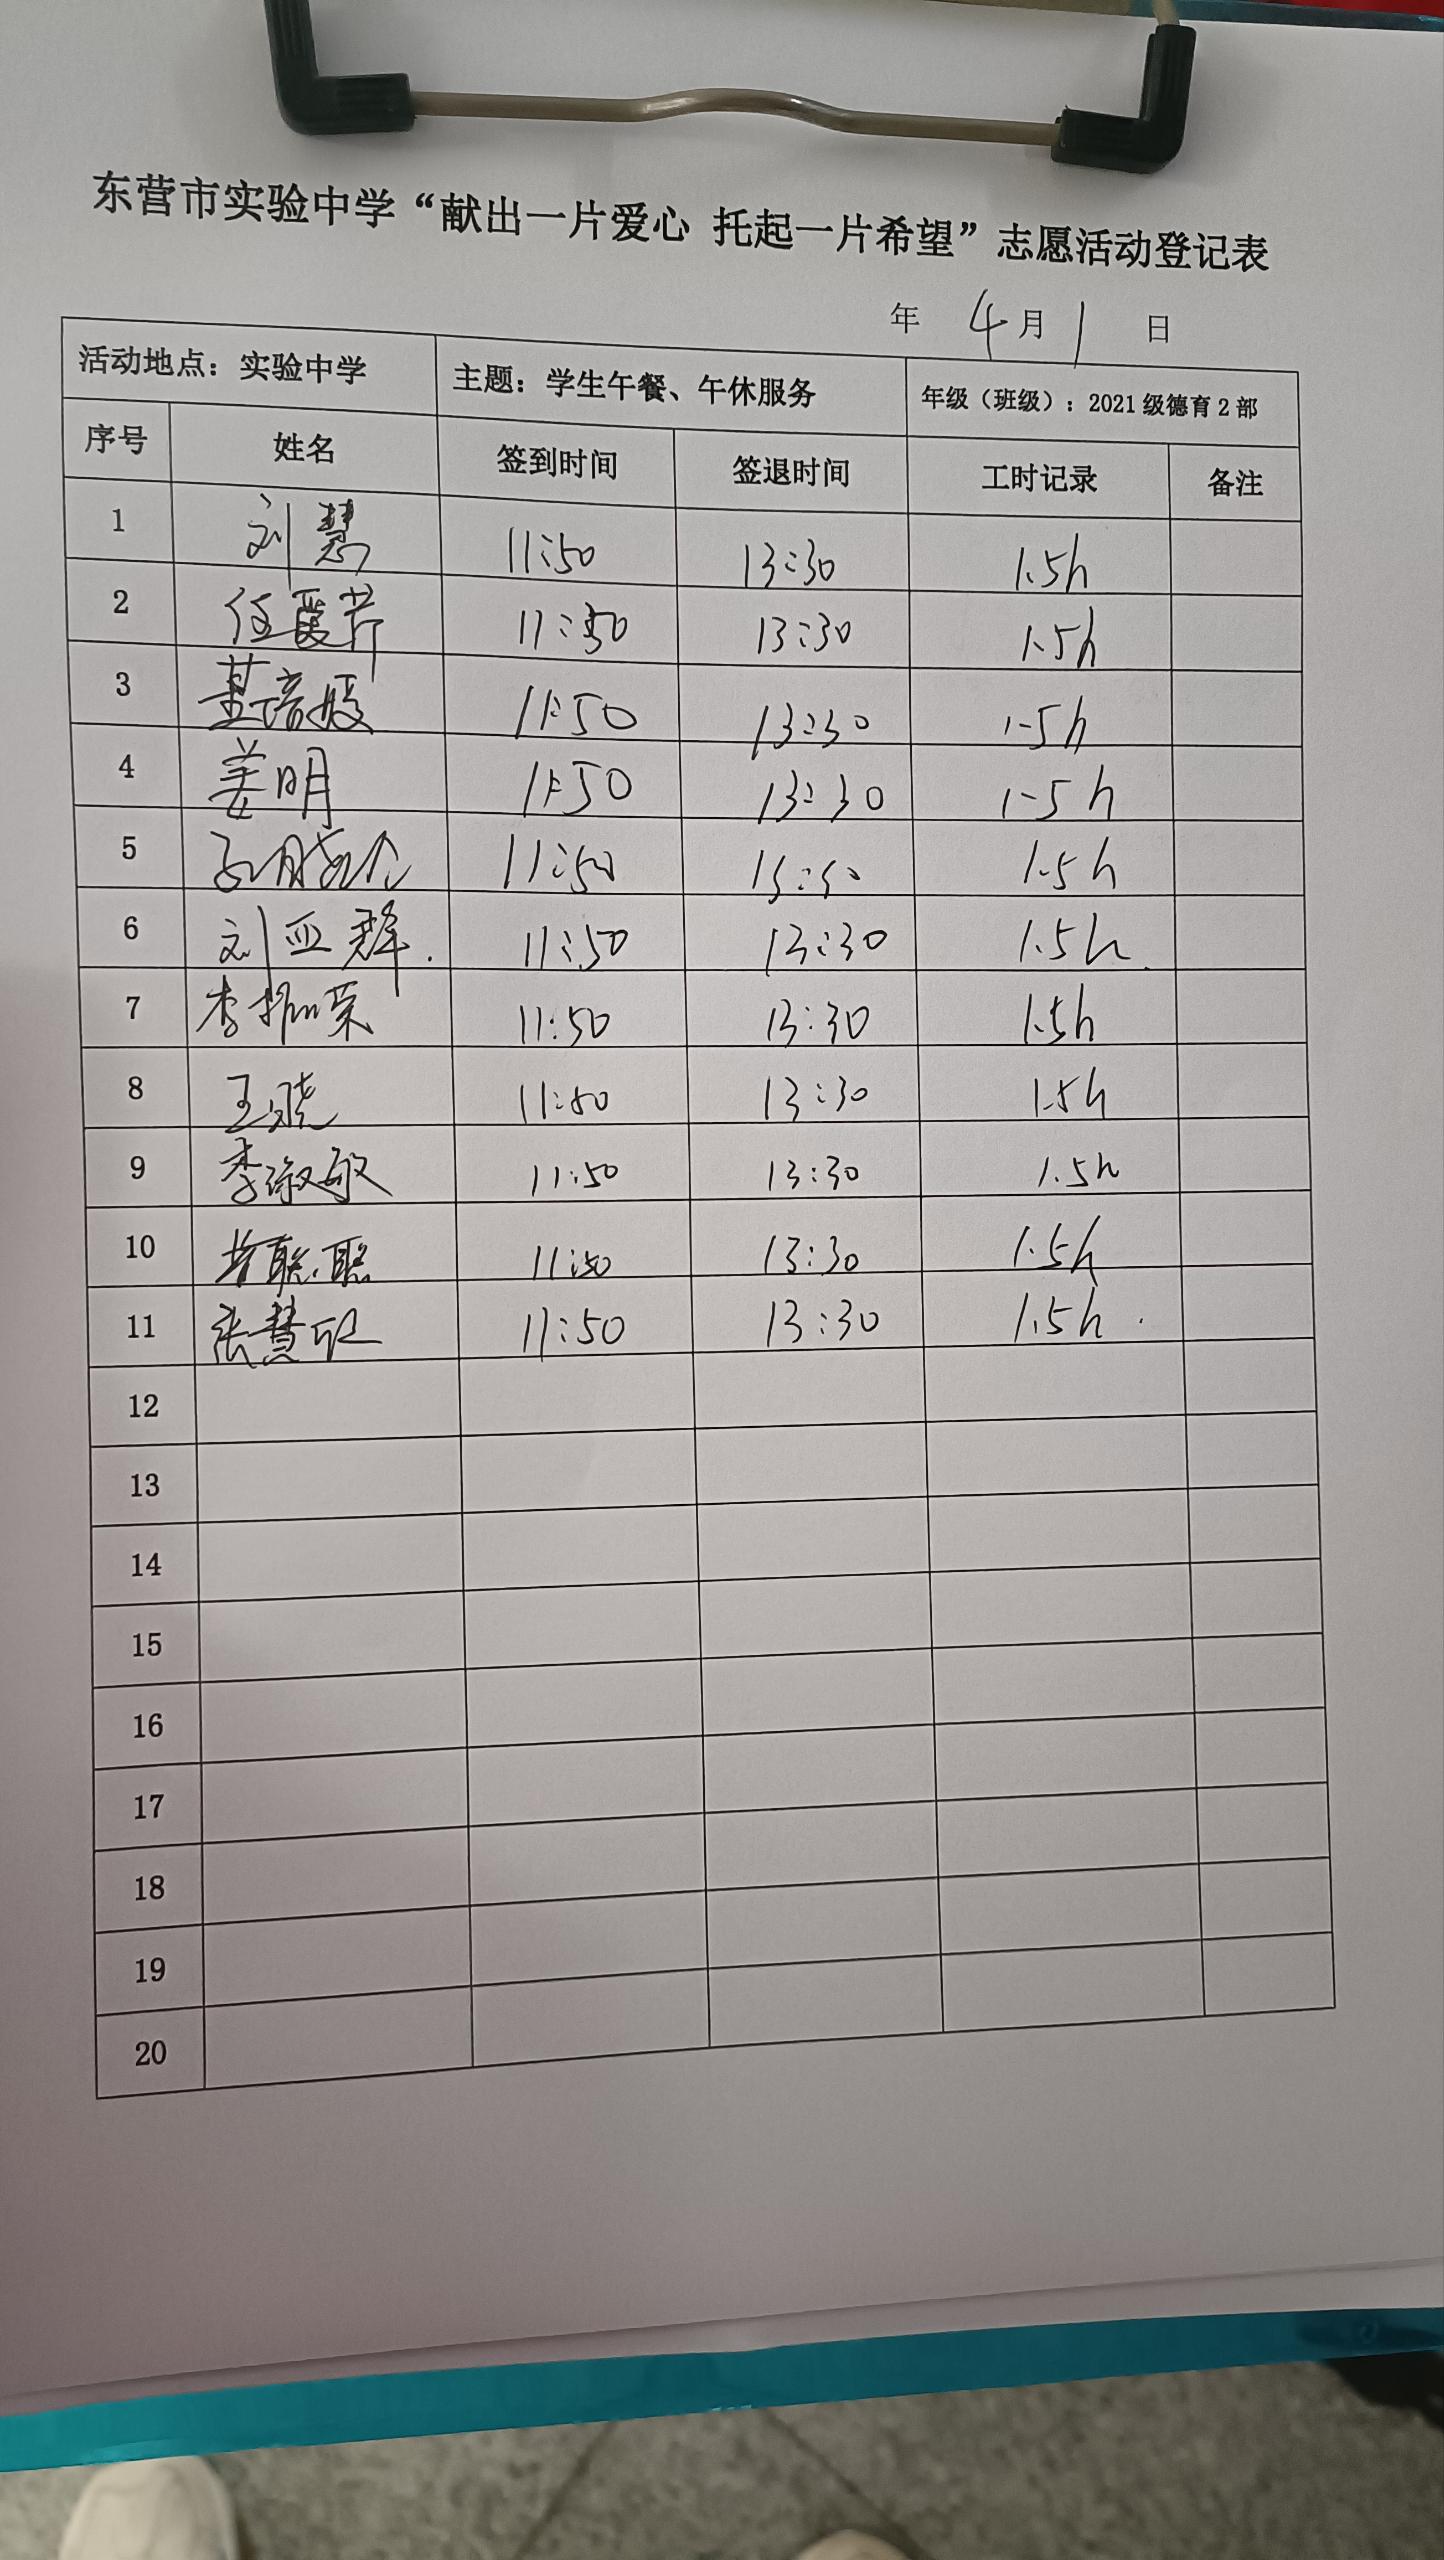 东营市实验中学“献出一片爱心 托起一片希望”志愿活动登记表
年 4月1 日
活动地点：实验中学 主题：学生午餐、午休服务 年级（班级）：2021级德育2部
序号 姓名 签到时间 签退时间 工时记录 备注
1 刘慧 11:50 13:30 1.5h
2 任霞芹 11:50 13:30 1.5h
3 11:50 13:30 1.5h
4 姜明 11:50 13:30 1.5h
5 11:50 1.5h
6 刘亚群. 11:50 13:30 1.5h.
7 李振荣 11:50 13:30 1.5h
8 王晓 11:50 13:30 1.5h
9 李淑敏 11:50 13:30 1.5h
10 11:50 13:30 1.5h
11 张慧欣 11:50 13:30 1.5h.
12
13
14
15
16
17
18
19
20